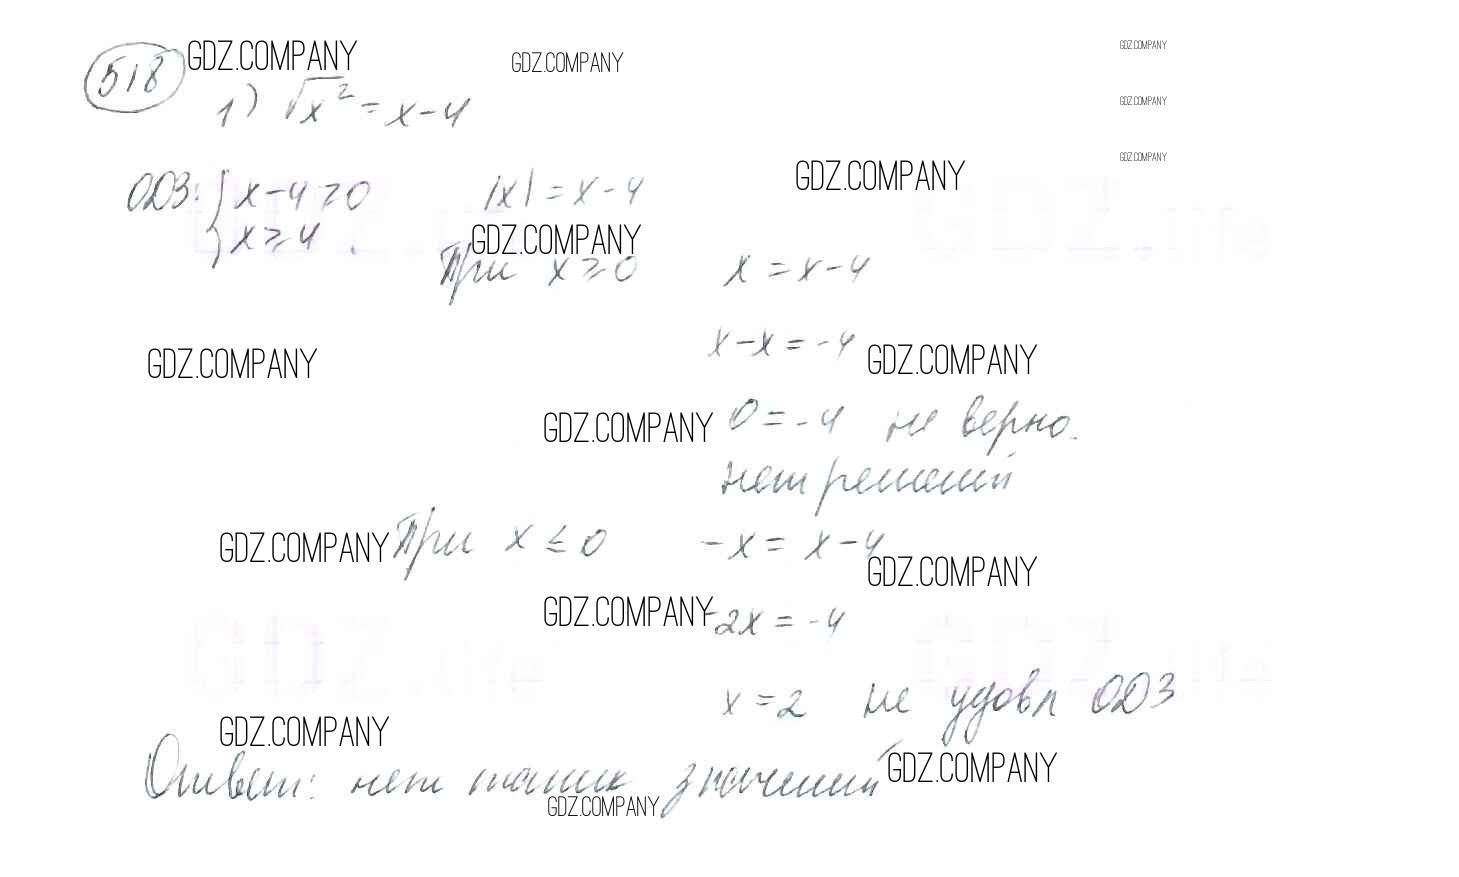 518 GDZ.COMPANY GDZ.COMPANY GDZ.COMPANY
1) √x² = x-4 GDZ.COMPANY
GDZ.COMPANY GDZ.COMPANY
ОДЗ: { x-4≥0 |x| = x-4
x≥4 GDZ.COMPANY
При x≥0 x = x-4
x-x = -4
GDZ.COMPANY GDZ.COMPANY
GDZ.COMPANY 0 = -4 не верно.
нет решений
GDZ.COMPANY При x ≤ 0 -x = x-4
GDZ.COMPANY
GDZ.COMPANY -2x = -4
GDZ.life GDZ.life
x = 2 не удовл ОДЗ
GDZ.COMPANY
Ответ: нет таких значений GDZ.COMPANY
GDZ.COMPANY